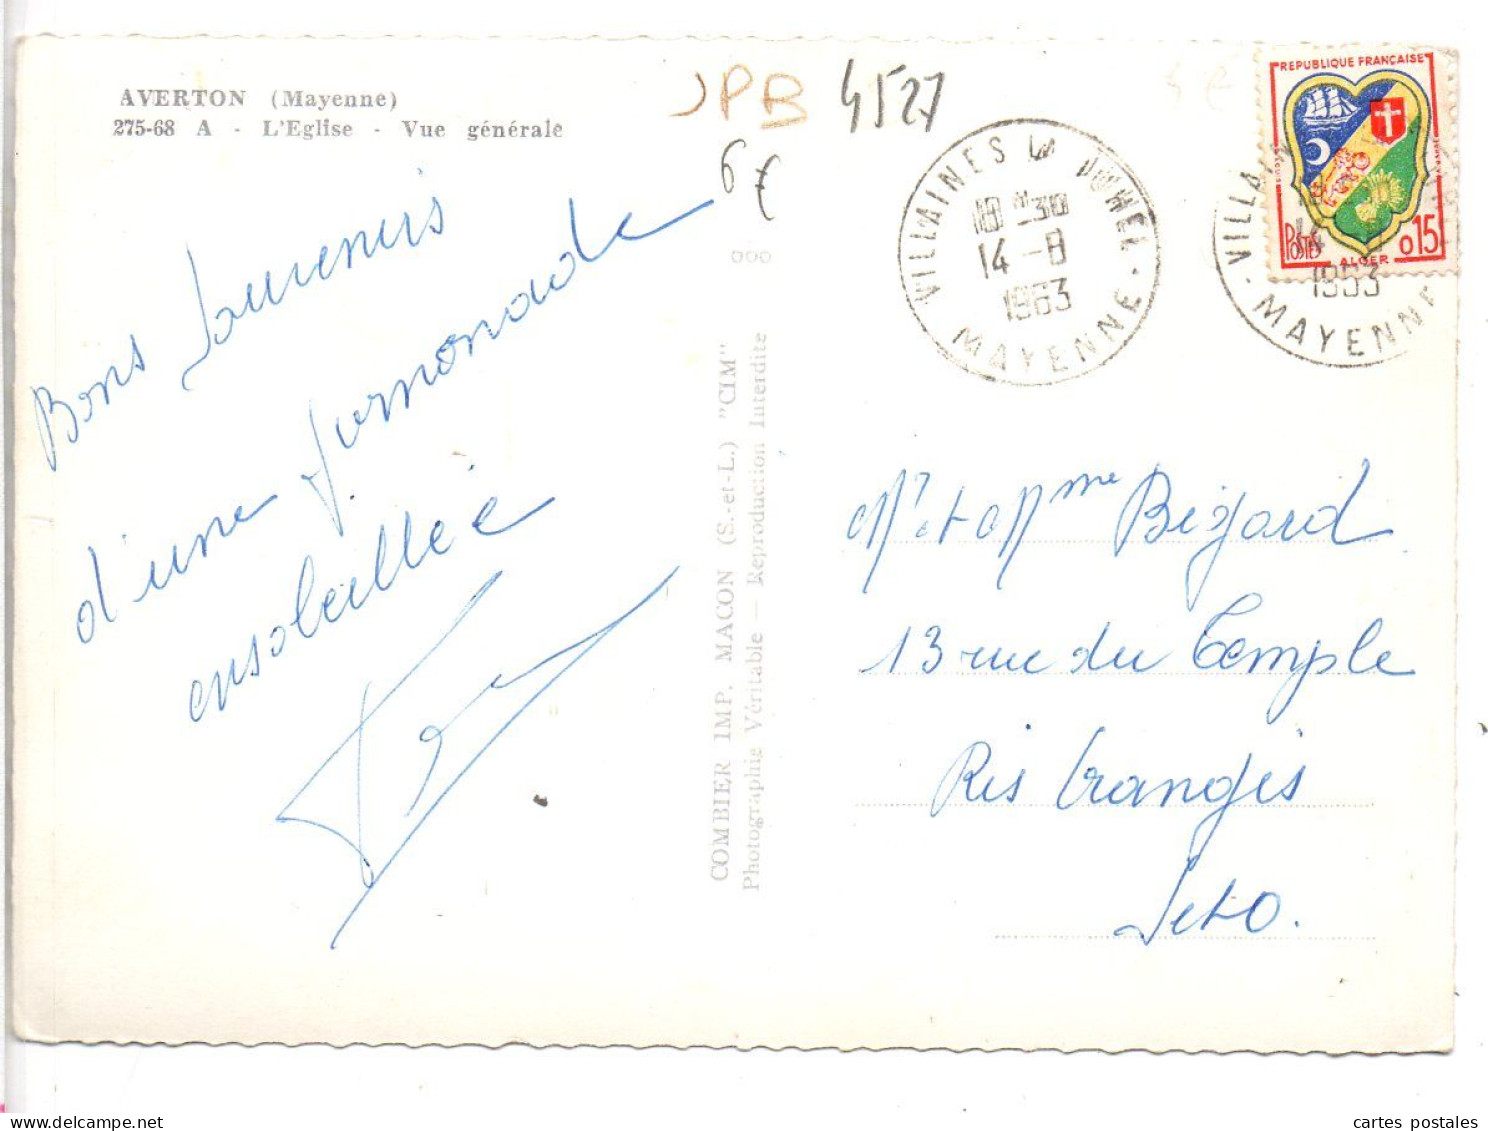 AVERTON (Mayenne)
275-68 A - L'Eglise - Vue générale
JPB
4527
6€
Bons Souvenirs
d'une journée
ensoleillée
COMBIER IMP. MACON (S.-et-L.) "CIM"
Photographie Véritable — Reproduction Interdite
VILLAINES LA JUHEL
18H30
14-8
1963
MAYENNE
REPUBLIQUE FRANÇAISE
POSTES
ALGER
0.15
VILLAIN
1963
MAYENNE
Mr et Mme Bégard
13 rue du Temple
Ris Orangis
S et O.
cartes postales